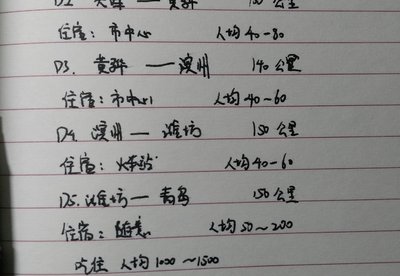 D2. 天津 — 黄骅 130 公里
住宿：市中心 人均 40-80
D3. 黄骅 — 滨州 140 公里
住宿：市中心 人均 40-60
D4. 滨州 — 潍坊 150 公里
住宿：火车站 人均 40-60
D5. 潍坊 — 青岛 150 公里
住宿：随意 人均 50~200
吃住 人均 1000~1500